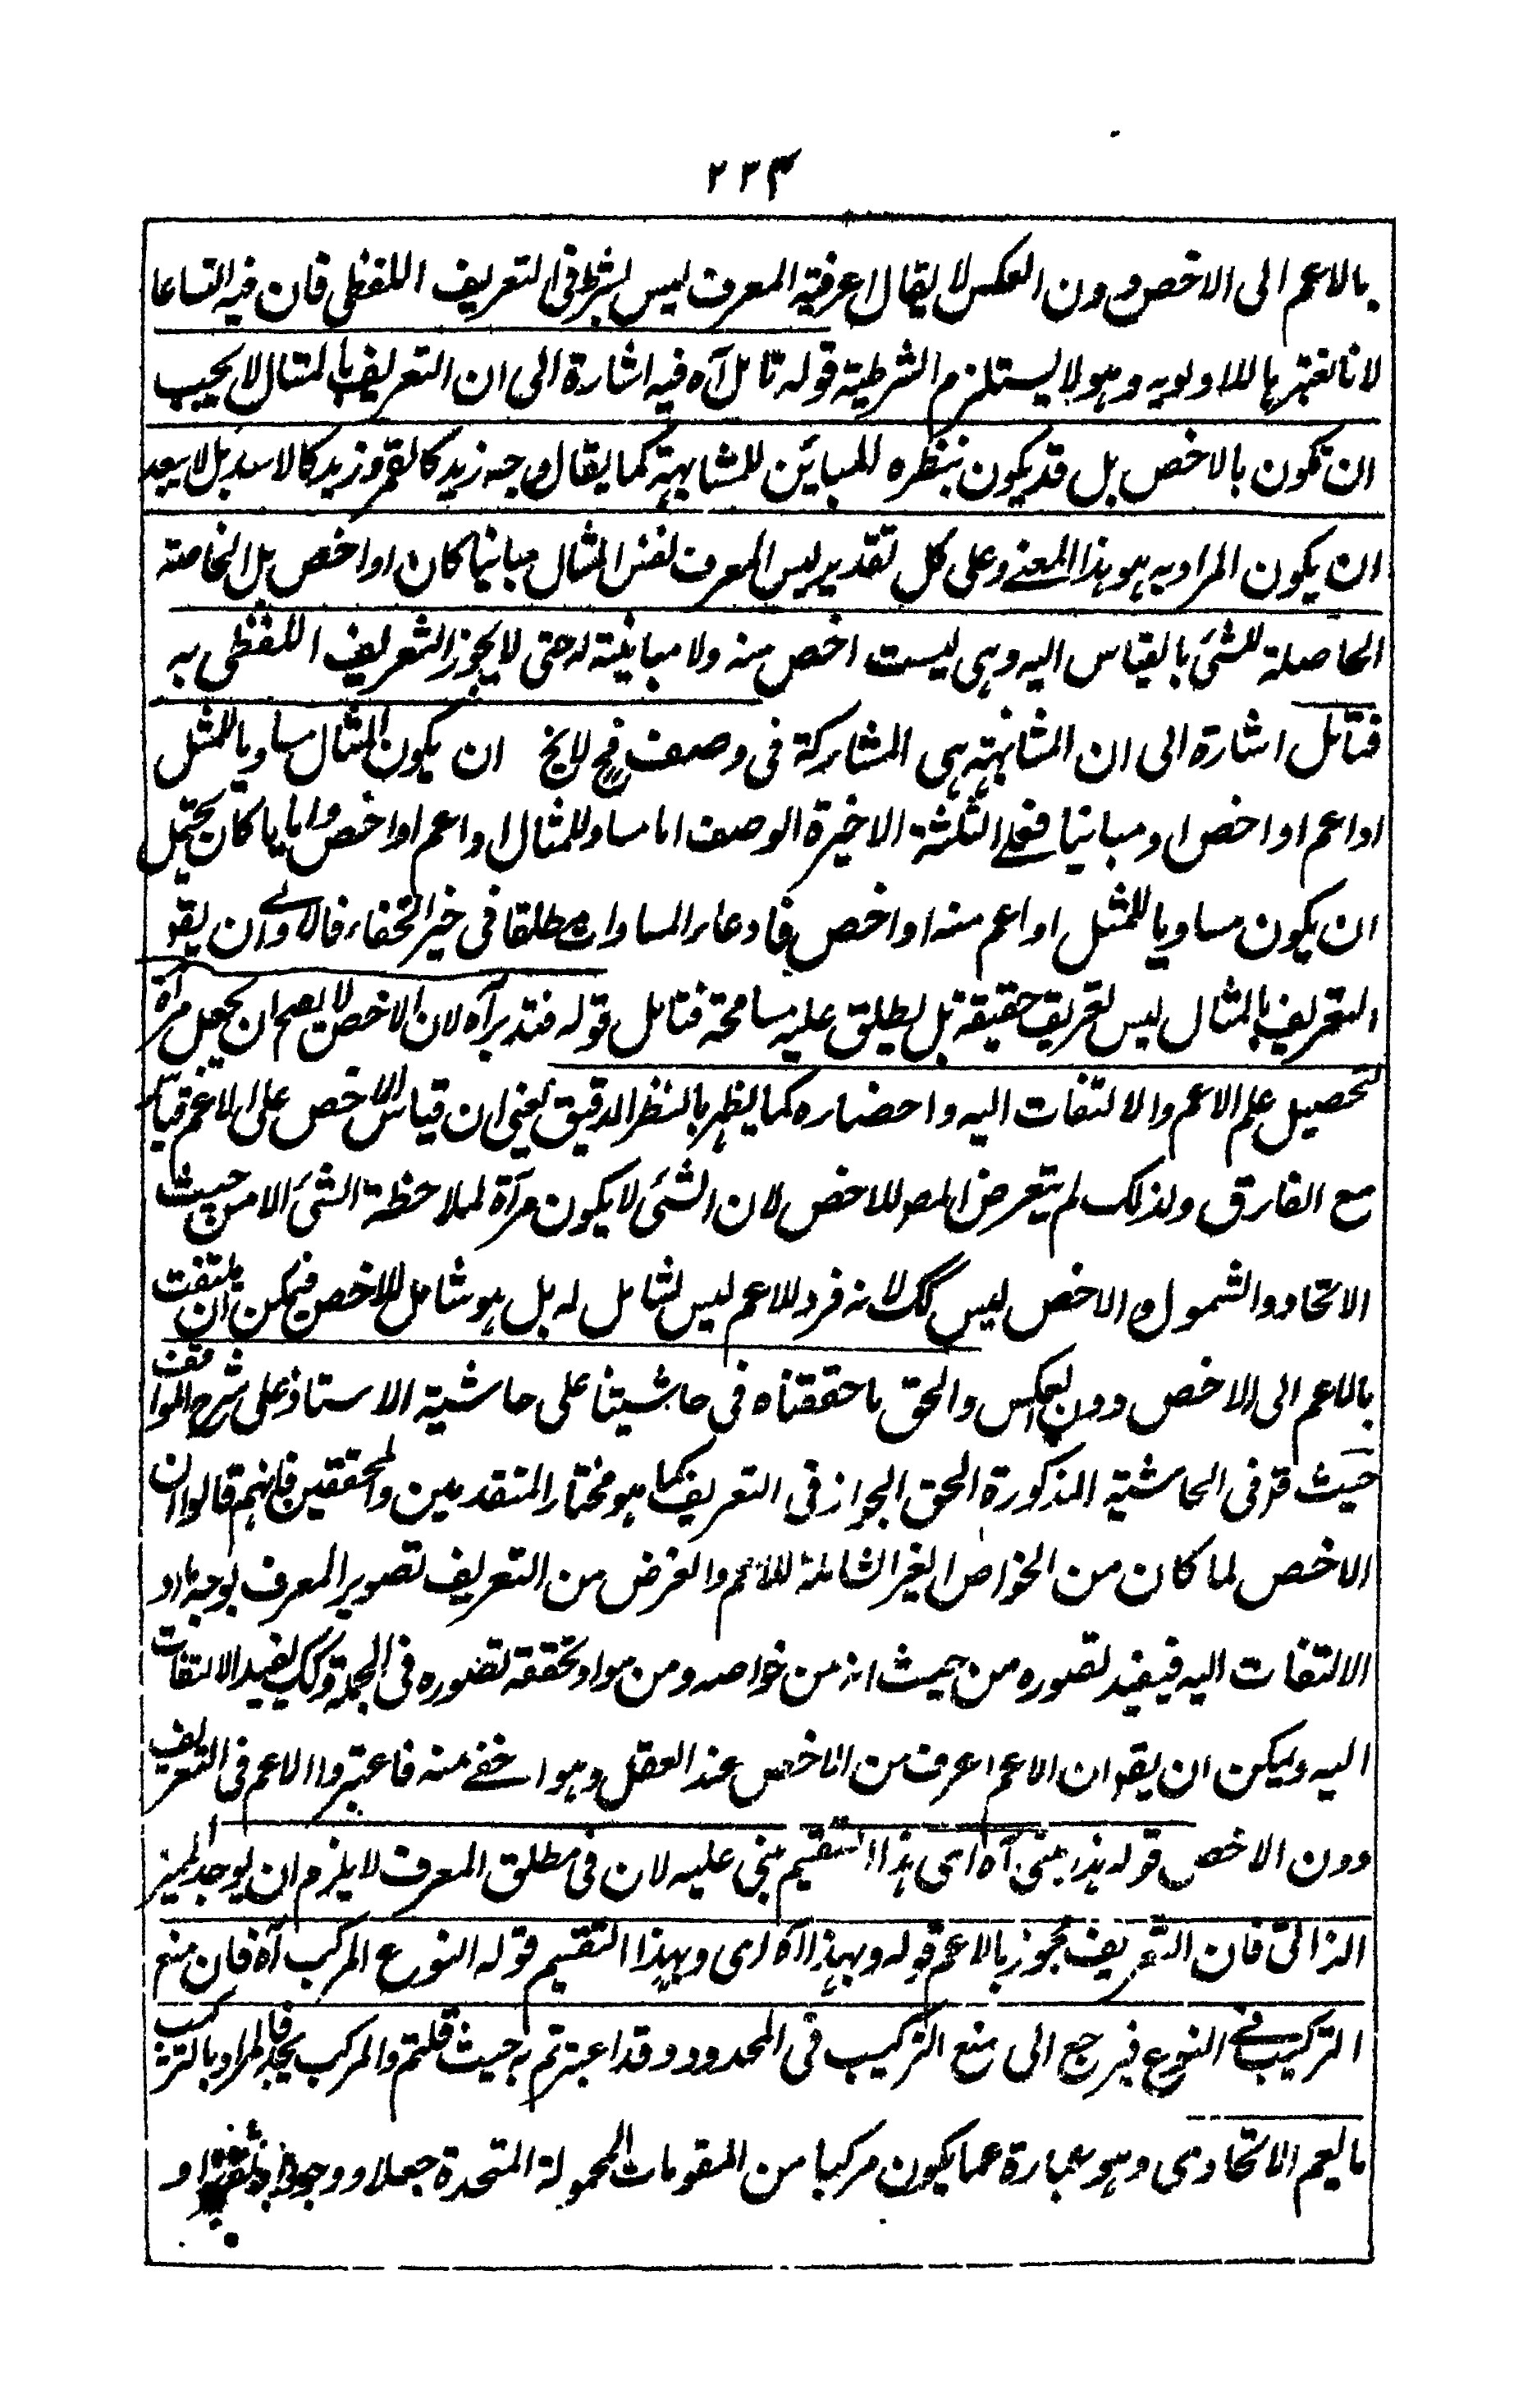 ٢٢٣
بالاعم الى الاخص دون العكس لا يقال اعرفية المعرف ليس بشرط في التعريف اللفظي فان فيه اتساعا
لانا نعتبرها للاولويه وهو لا يستلزم الشرطية قوله تأمل آه فيه اشارة الى ان التعريف بالمثال لا يجب
ان يكون بالاخص بل قد يكون بنظره للمبائن للمشابهة كما يقال وجه زيد كالقمر وزيد كالاسد بل لا يبعد
ان يكون المراد به هو هذا المعنے وعلى كل تقدير ليس المعرف نفس المثال مباينا كان او اخص بل الخاصة
الحاصلة للشئ بالقياس اليه وهى ليست اخص منه ولا مباينة له حتى لا يجوز التعريف اللفظى به
فتامل اشارة الى ان المشابهة هى المشاركة فى وصف فح لا يخ ان يكون المثال مساويا للمثل
او اعم او اخص او مباينا فعلے الثلثة الاخيرة الوصف اما مساو للمثال او اعم او اخص وايا ما كان يحتمل
ان يكون مساويا للمثل او اعم منه او اخص فادعاء المساوات مطلقا فى خير الخفاء فالاولے ان يقو
التعريف بالمثال ليس تعريف حقيقة بل يطلق عليه مسامحة فتامل قوله فتدبر آه لان الاخص لا يصح ان يجعل مرآة
لتحصيل علم الاعم والالتفات اليه واحضاره كما يظهر بالنظر الدقيق يعنى ان قياس الاخص على الاعم قياس
مع الفارق ولذلك لم يتعرض المصـ للاخص لان الشئ لا يكون مرآة لملاحظة الشئ الا من حيث
الاتحاد والشمول والاخص ليس كك لانه فرد للاعم ليس بشامل له بل هو شامل للاخص فيمكن ان يلتفت
بالاعم الى الاخص دون العكس والحق ما حققناه فى حاشيتنا على حاشية الاستاذ على شرح المواقف
حيث قر فى الحاشية المذكورة الحق الجواز فى التعريف كما هو مختار المتقدمين والمحققين فانهم قالوا ان
الاخص لما كان من الخواص الغير الشاملة للاعم والغرض من التعريف تصوير المعرف بوجه ما او
الالتفات اليه فيفيد تصوره من حيث انه من خواصه ومن مواد تحققه تصوره فى الجملة وكك يفيد الالتفات
اليه ويمكن ان يقو ان الاعم اعرف من الاخص عند العقل وهو اخفے منه فاعتبروا الاعم فى التعريف
دون الاخص قوله هذا مبنى آه اى هذا التقسيم مبنى عليه لان فى مطلق المعرف لا يلزم ان يوجد المميز
الذاتى فان التعريف يجوز بالاعم قوله وبهذا آه اى وبهذا التقسيم قوله النوع المركب آه فان منع
التركيب فے النوع فيرجع الى منع التركيب فى المحدود وقد اعتبرتم به حيث قلتم والمركب يحد فالمراد بالتركيب
ما يعم الاتحادى وهو عبارة عما يكون مركبا من المقومات المحمولة المتحدة جعلا ووجودا